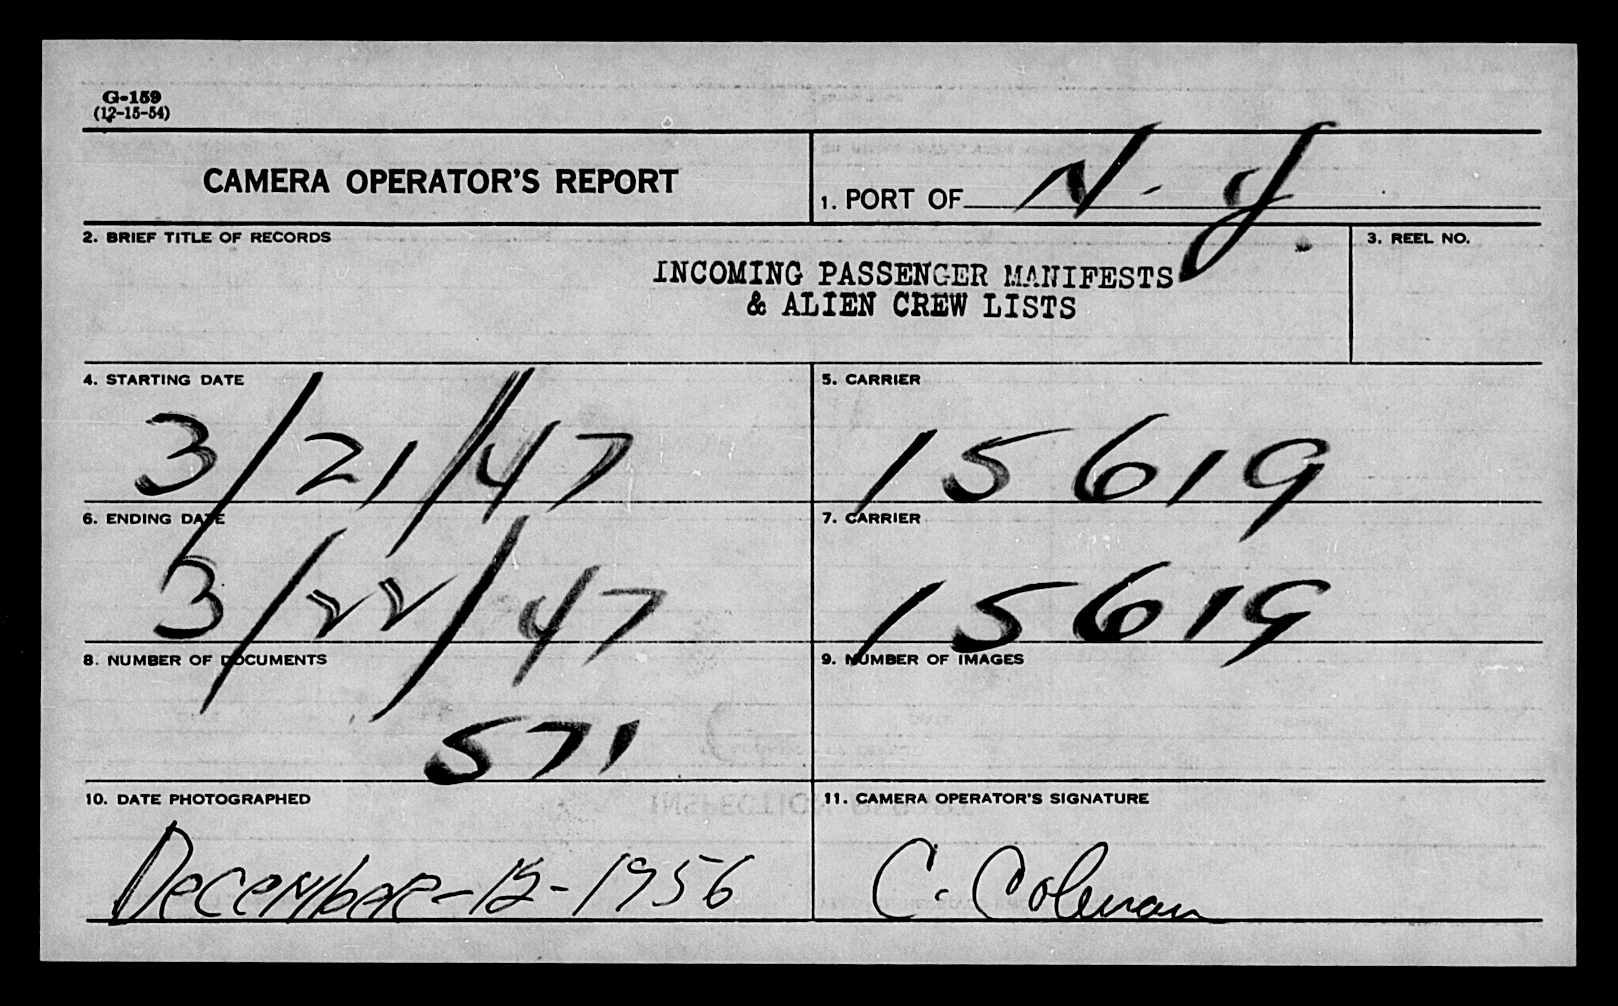 G-159
(12-15-54)
CAMERA OPERATOR'S REPORT
1. PORT OF N. Y.
2. BRIEF TITLE OF RECORDS
INCOMING PASSENGER MANIFESTS
& ALIEN CREW LISTS
3. REEL NO.
4. STARTING DATE
3/21/47
5. CARRIER
15619
6. ENDING DATE
3/22/47
7. CARRIER
15619
8. NUMBER OF DOCUMENTS
571
9. NUMBER OF IMAGES
10. DATE PHOTOGRAPHED
DECEMBER-12-1956
11. CAMERA OPERATOR'S SIGNATURE
C. Coleman